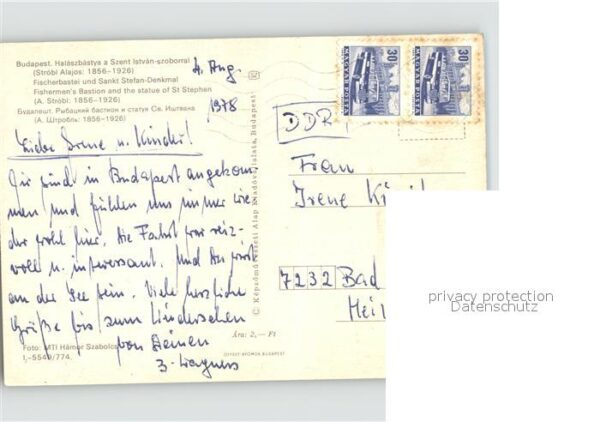 Budapest. Halászbástya a Szent István-szoborral
(Stróbl Alajos: 1856-1926)
Fischerbastei und Sankt Stefan-Denkmal
Fishermen's Bastion and the statue of St Stephen
(A. Stróbl: 1856-1926)
Будапешт. Рыбацкий бастион и статуя Св. Иштвана
(А. Штробль: 1856-1926)
4. Aug.
1978
Liebe u. Kinder!
Wir sind in Budapest angekom-
men und fühlen uns immer wie-
der wohl hier. Die Fahrt war reiz-
voll u. interessant. Und Ihr
an der See sein. Viele herzliche
Grüße bis zum Wiedersehen
von Deinen
3 Wagners
Foto: MTI Hámor Szabolcs
I.-5549/774.
Ára: 2,- Ft
OFFSET NYOMDA, BUDAPEST
© Képzőművészeti Alap Kiadóvállalata, Budapest
30f
MAGYAR POSTA
30f
MAGYAR POSTA
DDR
Frau
Irene
7232 Bad
privacy protection
Datenschutz